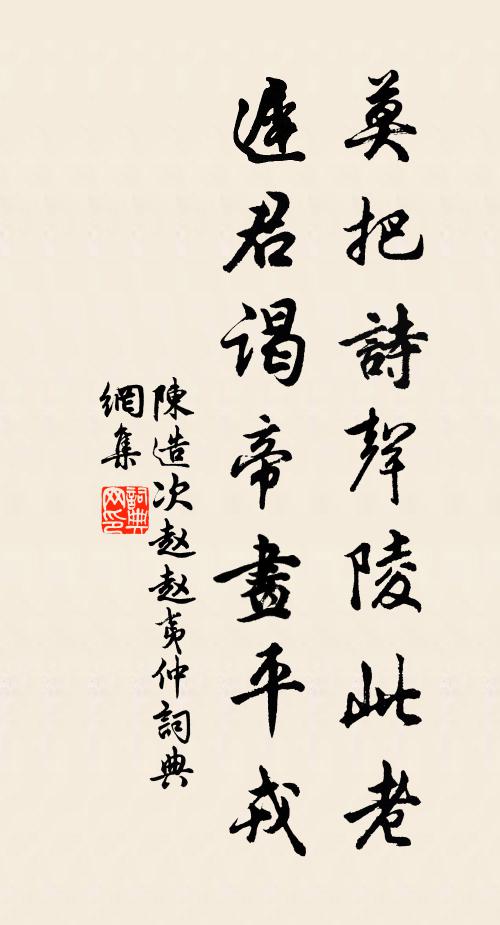 莫把詩聲陵此老
遲君謁帝畫平戎
陳造次赵赵夷仲詞典
網集
詞典
网印